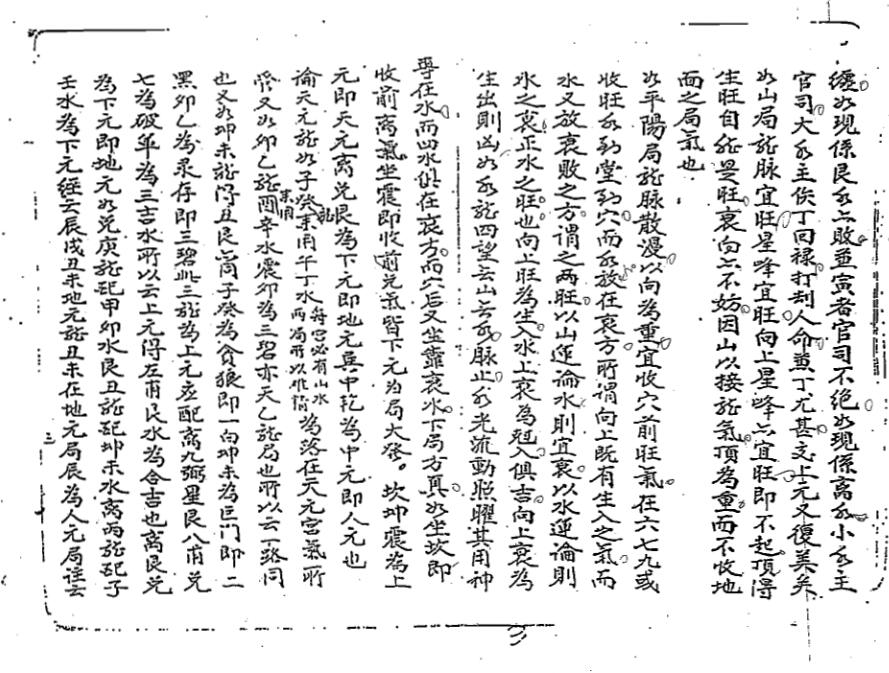 纏如現係艮水上敗並寅者官司不絕如現係离水小水主
官司大水主傷丁回祿打刼人命黃丁尤甚交上元又復美矣
如山局龍脉宜旺星峰宜旺向上星峰亦宜旺即不起頂得
生旺自能晏旺衰向亦不妨因山以接龍氣頂為重而不收地
面之局氣也
如平陽局龍脉散漫以向為重宜收穴前旺氣在六七九或
收旺水到堂到穴而水放在衰方所謂向上既有生入之氣而
水又放衰敗之方謂之两旺以山運論水則宜衰以水運論則
水之衰正水之旺也向上旺為生入水上衰為尅入俱吉向上衰為
生出則凶如水龍四望云山云水脉止水光流動照曜其用神
專在水而四水俱在衰方而穴后又坐靠衰水下局方真如坐坎即
收前离氣坐震即收前兌氣皆下元为局大發。坎坤震為上
元即天元离兌艮為下元即地元巽中乾為中元即人元也
論天元龍如子癸龍未甬午丁水每宮必有山水两局所以惟簡為落在天元宮氣所
管又如卯乙龍酉辛水震卯為三碧亦天乙龍局也所以云一路同
也又如坤未龍得丑艮水而子癸為貪狼即一白坤未為巨门即二
黑卯乙為彔存即三碧此三龍為上元应配离九弼星艮八甫兌
七為破軍為三吉水所以云上元得左甫艮水為合吉也离艮兌
為下元即地元如兌庚龍配甲卯水艮丑龍配坤未水离丙龍配子
壬水為下元經云辰戌丑未地元龍丑未在地元局辰為人元局註云
三